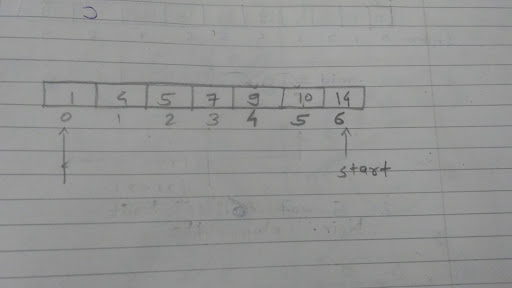 1 4 5 7 9 10 14
0 1 2 3 4 5 6
start